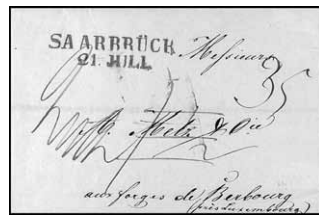 SAARBRÜCK
21. JULI.
Messieurs
35
Metz & Cie
aux forges de Berbourg
(près Luxembourg.)